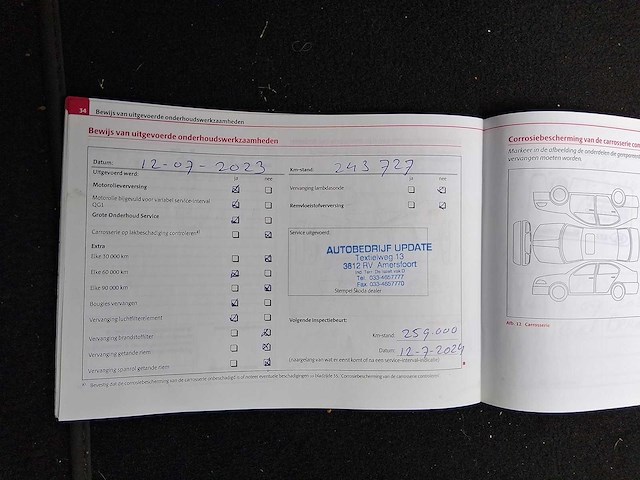 34 Bewijs van uitgevoerde onderhoudswerkzaamheden
Bewijs van uitgevoerde onderhoudswerkzaamheden
Datum: 12-07-2023
Km-stand: 243 727
Uitgevoerd werd: ja nee
ja nee
Motorolieverversing
Motorolie bijgevuld voor variabel service-interval
QG1
Grote Onderhoud Service
Carrosserie op lakbeschadiging controleren
Extra
Elke 30 000 km
Elke 60 000 km
Elke 90 000 km
Bougies vervangen
Vervanging luchtfilterelement
Vervanging brandstoffilter
Vervanging getande riem
Vervanging spanrol getande riem
Vervanging lambdasonde
Remvloeistofverversing
Service uitgevoerd:
AUTOBEDRIJF UPDATE
Textielweg 13
3812 RV Amersfoort
Tel. 033-4657777
Fax 033-4657770
Stempel Škoda dealer
Volgende inspectiebeurt:
Km-stand: 259.000
Datum: 12-7-2024
(naargelang van wat er eerst komt of na een service-interval-indicatie)
Corrosiebescherming van de carrosserie con
Markeer in de afbeelding de onderdelen die gerepareerd
vervangen moeten worden.
Afb. 12 Carrosserie